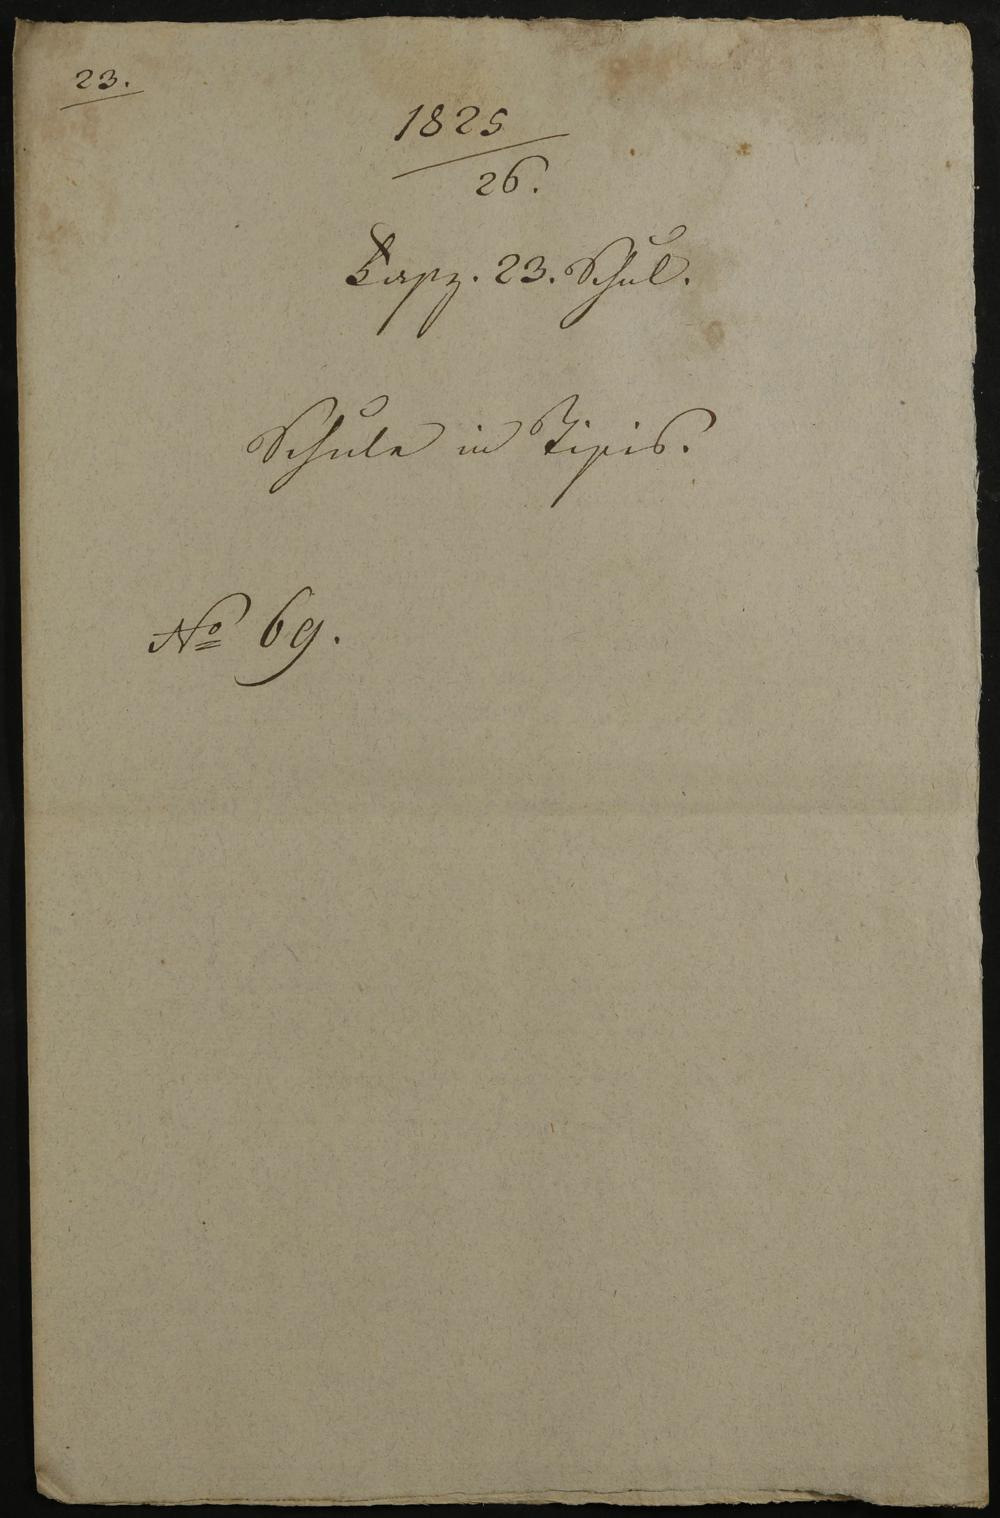 23.
1825
26.
23. Schul.
Schule in Tipis.
No 69.